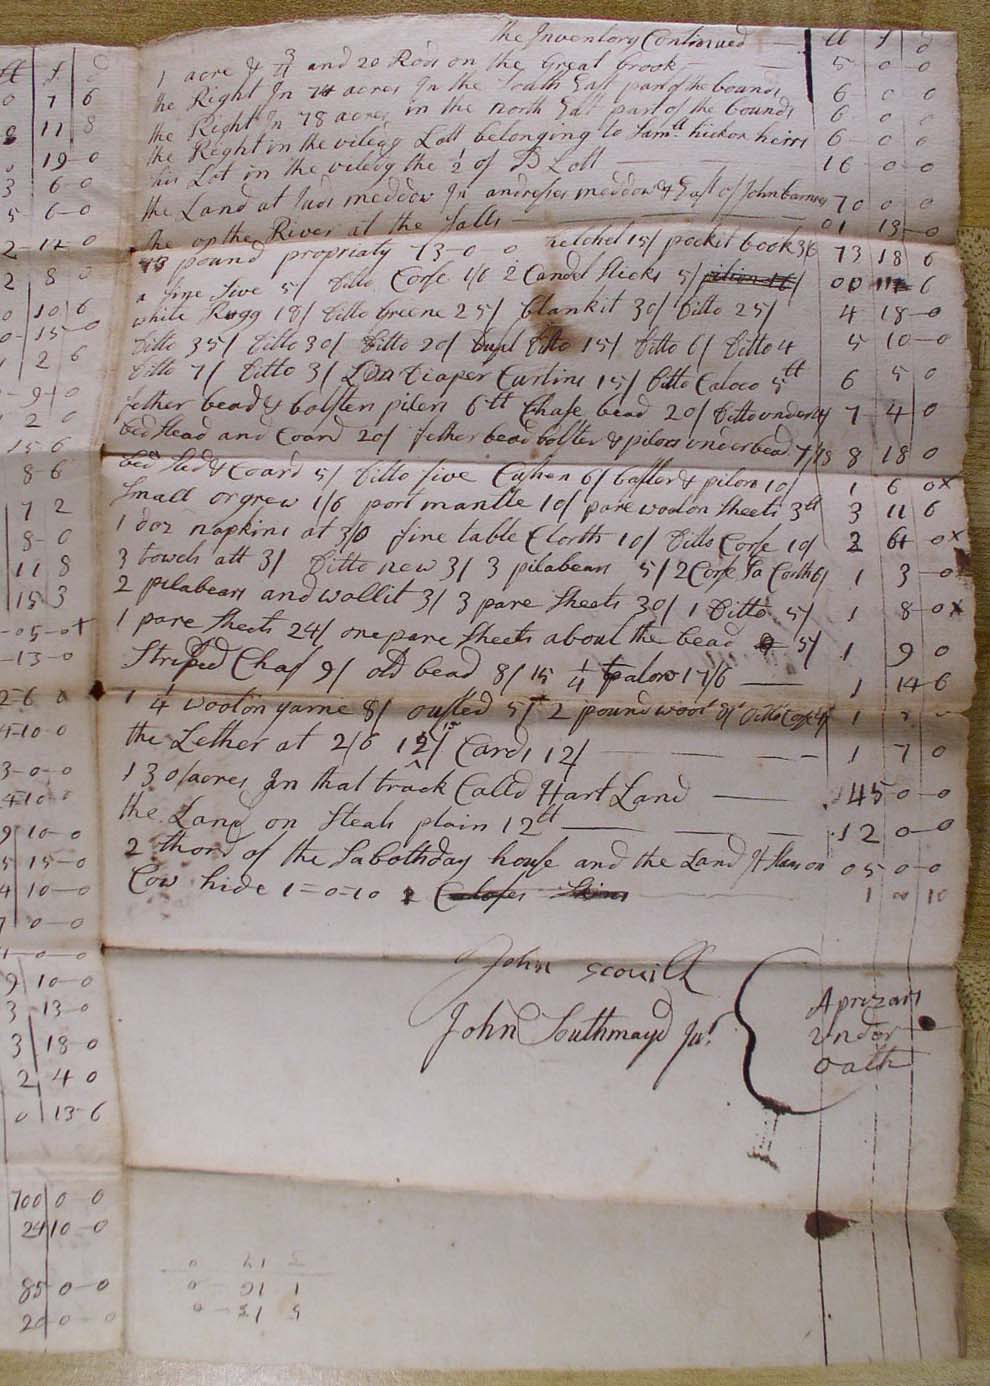 the Inventory Continued — tt s d
1 acre & 3/4 and 20 Rods on the great brook — 5 0 0
the Right In 74 acres In the South East part of the bounds 6 0 0
the Right In 78 acres in the north East part of the bounds 6 0 0
the Right in the vileg Lott belonging to Samll hickox heirs 6 0 0
his Lot in the vileg the 1/2 of D Lott — 16 0 0
the Land at Juds meddow In andresses meddow & East of John barnes 70 0 0
the River at the falls — 01 13 0
73 pound propriaty 73-0 0 hetchel 15/ pocket book 3/6 73 18 6
a fine sive 5/ Ditto Corse 1/6 2 Candel sticks 5/ 00 6
white Rugg 18/ Ditto Greene 25/ blankit 30/ Ditto 25/ 4 18-0
Ditto 35/ Ditto 30/ Ditto 20/ Ditto 15/ Ditto 6/ Ditto 4 5 10-0
Ditto 7/ Ditto 3/ Diaper Curtins 15/ Ditto Caloco 5tt 6 5 0
fether bead & bolsten pilers 6tt Chafe bead 20/ Ditto under 4/ 7 4 0
bed stead and Coard 20/ fether bead bolster & pilors under bead 7/18 8 18 0
bed sted & Coard 5/ Ditto five Cushen 6/ bolster & pilors 10/ 1 6 0x
Small orgrew 1/6 port mantle 10/ pare woolon sheets 3tt 3 11 6
1 doz napkins at 30 fine table Cloth 10/ Ditto Corse 10/ 2 0x
3 towels att 3/ Ditto new 3/ 3 pilabears 5/ 2 Corse Ta Cloth 6/ 1 3-0
2 pilabears and wallit 3/ 3 pare sheets 30/ 1 Ditto 5/ 1 8-0x
1 pare sheets 24/ one pare sheets about the bead 5/ 1 9 0
Striped Chaf 9/ old bead 8/ 15 1/4 17/6 — 1 14 6
1 1/4 woolon yarne 8/ ousted 5/ 2 pound wool 8/ Ditto Corse 1
the Lether at 2/6 12/ Cards 12/ — 1 7 0
130 acres In that track Calld Hart Land — 145 0-0
the Land on Steals plain 12tt — 12 0-0
2 thord of the Sabothday house and the Land It stans on 05 0-0
Cow hide 1=0=10 1 0 10
John Scovill
John Southmayd Jur
Aprizars
under
oath
tt s d
0 7 6
8 11 8
19-0
3 6-0
5 6-0
2-12 0
2 8 0
0 10 6
0-15-0
1 2 6
9 0
2 0
15 6
8 6
7 2
8-0
11 8
15 3
-05-0+
-13-0
26 0
4-10 0
3-0-0
4 10 0
9 10-0
5 15-0
4 10-0
7 0-0
0-0
9 10-0
3-13-0
3 18-0
2 4 0
0 13-6
700 0 0
24 10-0
85 0-0
20 0-0